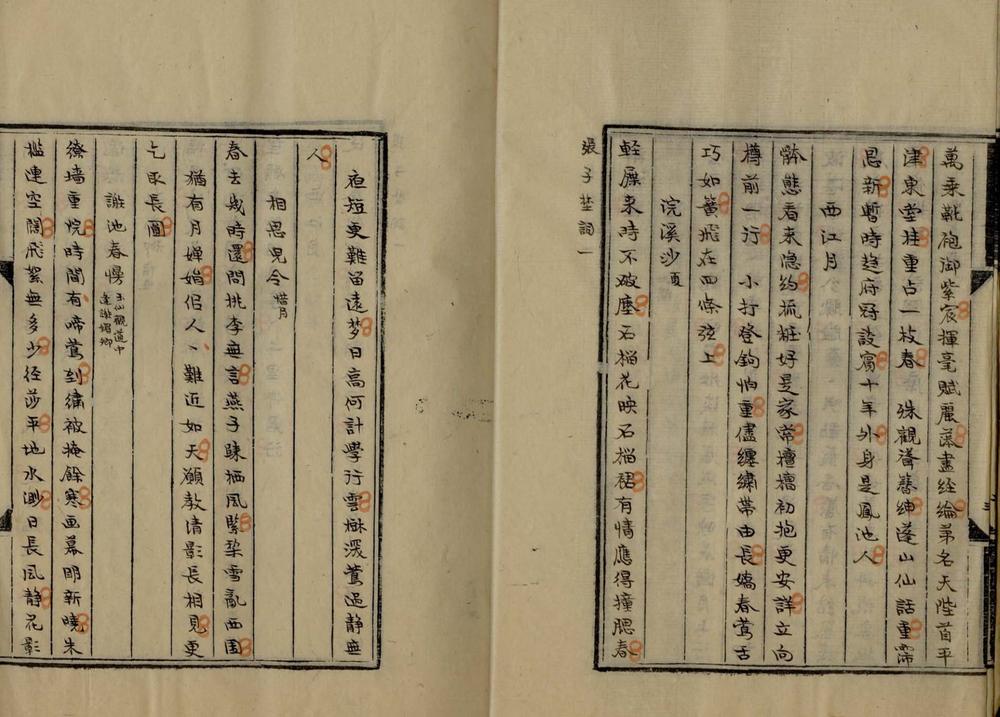 萬乘靴袍御紫宸揮毫敷麗藻盡經綸第名天陛首平
津東堂桂重占一枝春　殊觀聳簪紳蓬山仙話重霈
恩新暫時趍府冠談賓十年外身是鳳池人
西江月
體態看來隱約梳粧好是家常檀槽初抱更安詳立向
樽前一行　小打登鉤怕重儘纏繡帶由長嬌春鶯舌
巧如簧飛在四條弦上
浣溪沙夏
輕屧來時不破塵石榴花映石榴裙有情應得撞腮春
張子埜詞一
夜短更難留遠夢日高何計學行雲樹深鶯過靜無
人
相思兒令惜月
春去幾時還問桃李無言燕子踈栖風緊梨雪亂西園
猶有月嬋娟佀人人難近如天願教清影長相見更
乞取長圓
謝池春慢玉仙觀道中逢謝媚卿
繚墻重院時間有啼鶯到繡被掩餘寒画幕明新曉朱
檻連空闊飛絮無多少徑莎平地水渺日長風靜花影